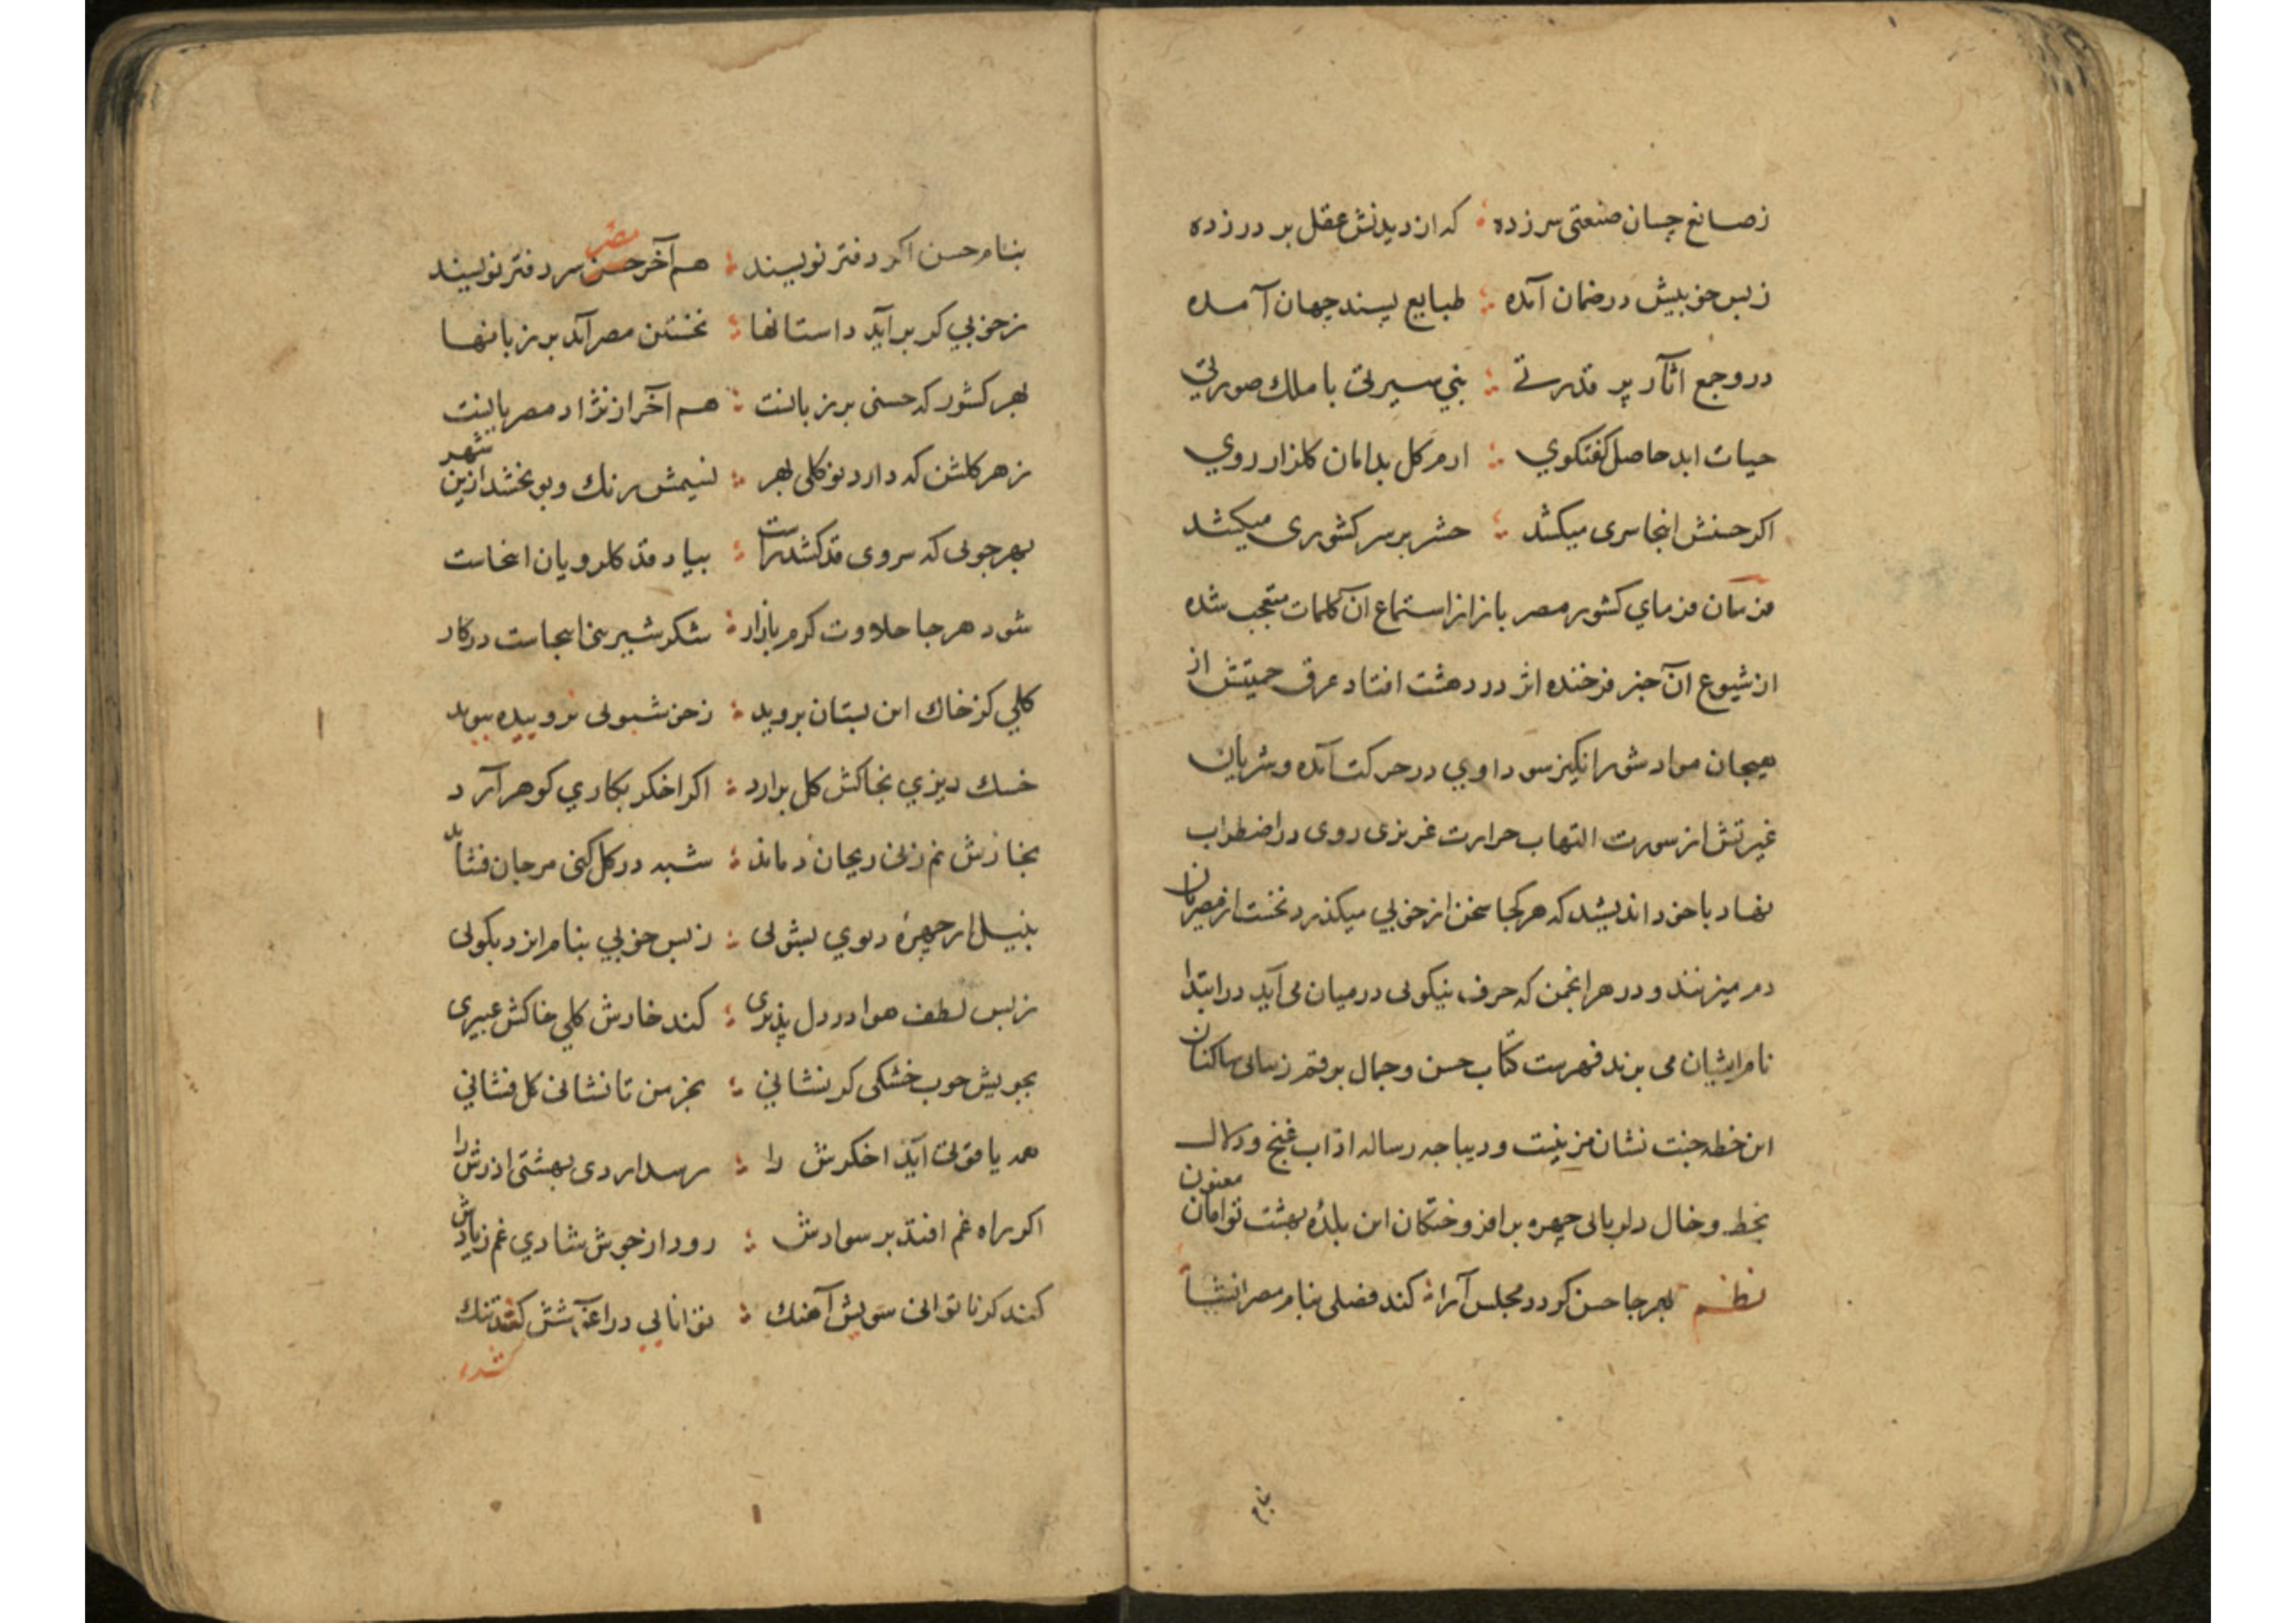 ز صانع چسان صنعتی سر زده ؛ که از دیدنش عقل بر در زده
ز بس خوبیش در ضمان آمده ؛ طبایع پسند جهان آمده
درو جمع آثار پر قدرتے ؛ بنی سیرتی با ملك صورتی
حیات ابد حاصل کفتکوي ؛ ارم کل بدامان کلزار روي
اکر حسنش اینجا سری میکشد ؛ حشر بر سر کشوری میکشد
فرمان فرماي کشور مصر باز از استماع آن کلمات متعجب شده
از شیوع آن خبر فرخنده اثر در دهشت افتاد عرق حمیتش از
هیجان مواد شور انکیز سوداوي در حرکت آمده و شریان
غیرتش از سورت التهاب حرارت غریزی روی در اضطراب
نهاد با خود اندیشد که هر کجا سخن از خوبي میکذرد نخست از مصریان
دم میزنند و در هر انجمن که حرف نیکوئی در میان می آید در ابتدا
نام ایشان می برند فهرست کتاب حسن و جمال برقم زیبائی ساکنان
این خطه جنت نشان مزینست و دیباجه رساله اداب غنج و دلال
بخط و خال دلربائی چهره برافروختکان این بلدهٔ بهشت توامان معنون
نظم بهر جا حسن کردد مجلس آرا ؛ کند فصلی بنام مصر انشا
بنام
بنام حسن اکر دفتر نویسند ؛ هم آخر حسن مصر سر دفتر نویسند
ز خوبي کر بر آید داستانها ؛ نخستن مصر آید بر زبانها
بهر کشور که حسنی بر زبانست ؛ هم آخر از نژاد مصریانست
ز هر کلشن که دارد نو کلی بهر ؛ نسیمش رنك و بو بخشد ازین شهر
بهر جوئی که سروی قد کشد راست ؛ بیاد قد کلرویان اینجاست
شود هر جا حلاوت کرم بازار ؛ شکر شیرینی اینجاست در کار
کلي کز خاك این بستان بروید ؛ ز خود شبوئی نروییده ببوید
خسك ریزي بخاکش کل برارد ؛ اکر اخکر بکاري کوهر آرد
بخارش نم زنی ریحان دماند ؛ شبه در کل کنی مرجان فشاند
بنیل ار چهرهٔ دیوي بشوئی ؛ ز بس خوبي بنام ایزد بکوئی
ز بس لطف هوا در دل پذیری ؛ کند خارش کلي خاکش عبیری
بجویش چوب خشکی کر نشاني ؛ بجز من تا نشانی کل فشاني
همه یاقوتی آید اخکرش را ؛ رسد اردی بهشتی اذرش را
اکر راه غم افتد بر سوادش ؛ رود از جوش شادي غم ز یادش
کند کر ناتوانی سویش آهنك ؛ توانايي در اغوشش کشد تنك
شد